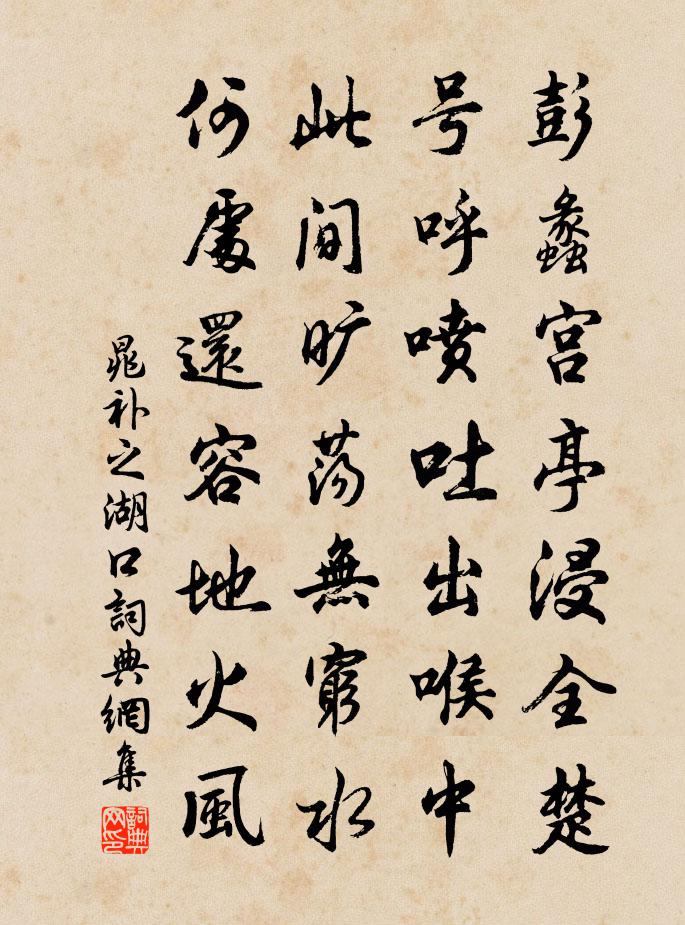 彭蠡宫亭浸全楚
号呼喷吐出喉中
此间旷荡無窮水
何處還容地火風
晁补之湖口詞典網集
詞典网印